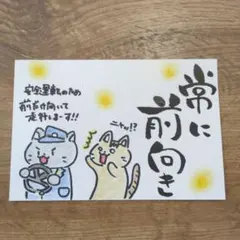 常に
前向き
安全運転のため
前だけ向いて
走行しまーす!!
ニャッ!?